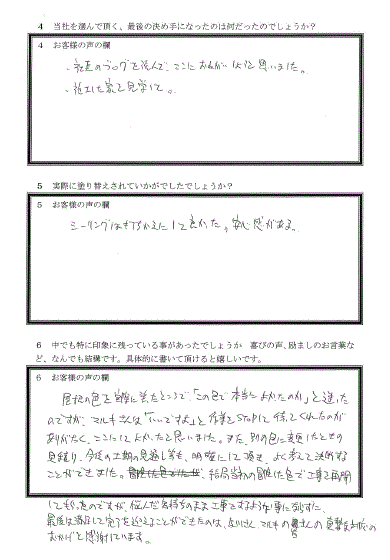 4 当社を選んで頂く、最後の決め手になったのは何だったのでしょうか？
4 お客様の声の欄
・社長のブログを読んで、ここにおねがいしようと思いました。
・施工した家を見学して。
5 実際に塗り替えされていかがでしたでしょうか？
5 お客様の声の欄
シーリングは打ちかえにして良かった。安心感がある。
6 中でも特に印象に残っている事があったでしょうか 喜びの声、励ましのお言葉な
ど、なんでも結構です。具体的に書いて頂けると嬉しいです。
6 お客様の声の欄
屋根の色を実際に塗ったところで、「この色で本当によかったのか」と迷った
のですが、マルキさんは「いいですよ」と作業をSTOPして待ってくれたのが
ありがたく、ここにしてよかったと思いました。また、別の色に変更したときの
見積り、今後の工期の見通し等も、明確にして頂き、よく考えて決断する
ことができました。結局当初の色で工事を再開
してもらったのですが、悩んだ気持ちのまま工事をするような事にならずに、
最後は満足して完了を迎えることができたのは、マルキの皆さんの
おかげと感謝しています。